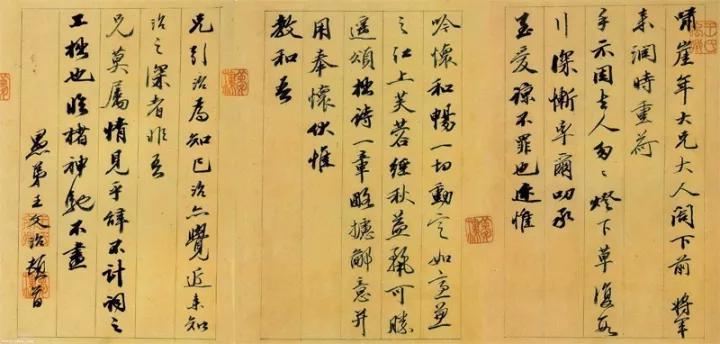 啸崖年大兄大人阁下前将军
来润时重荷
手示因去人匆匆灯下草復
深惭率尔叨承
至爱谅不罪也迩惟
吟怀和畅一切动定如意
之江上芙蓉经秋益丽可胜
遥颂拙诗一章略摅鄙意并
用奉怀伏惟
教和为
兄引治为知己治亦觉近来知
治之深者非吾
兄莫属情见乎辞不计词之
工拙也临楮神驰不尽
愚弟王文治顿首